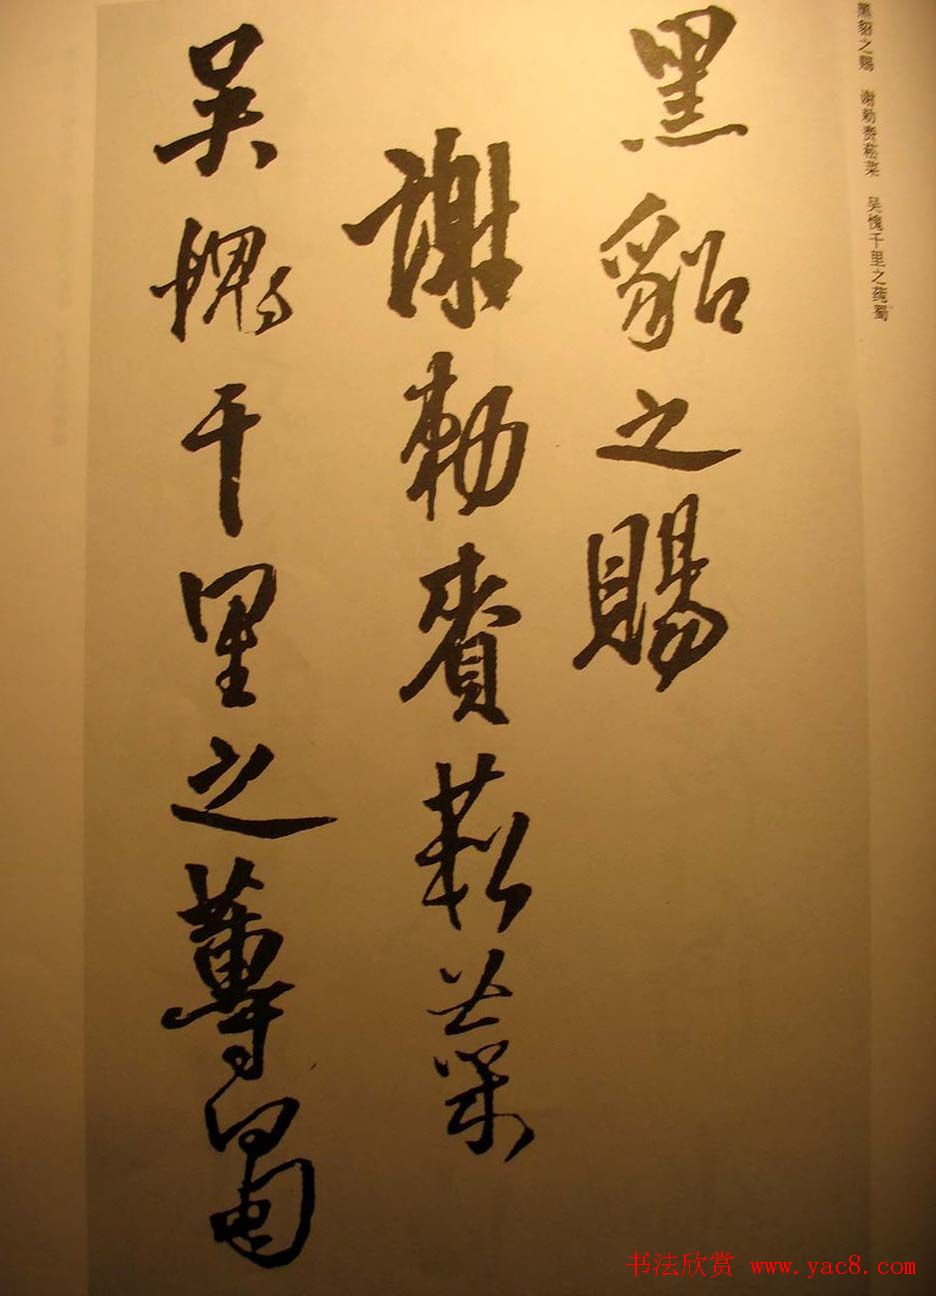 黑貂之赐 谢勑赉菘菜 吴愧千里之莼蜀
黑貂之賜
謝勑賚菘菜
吴愧千里之蓴蜀
书法欣赏 www.yac8.com